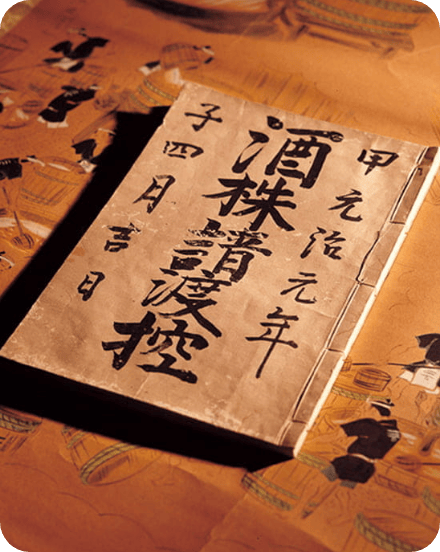 甲元治元年
酒株譜渡控
子四月吉日